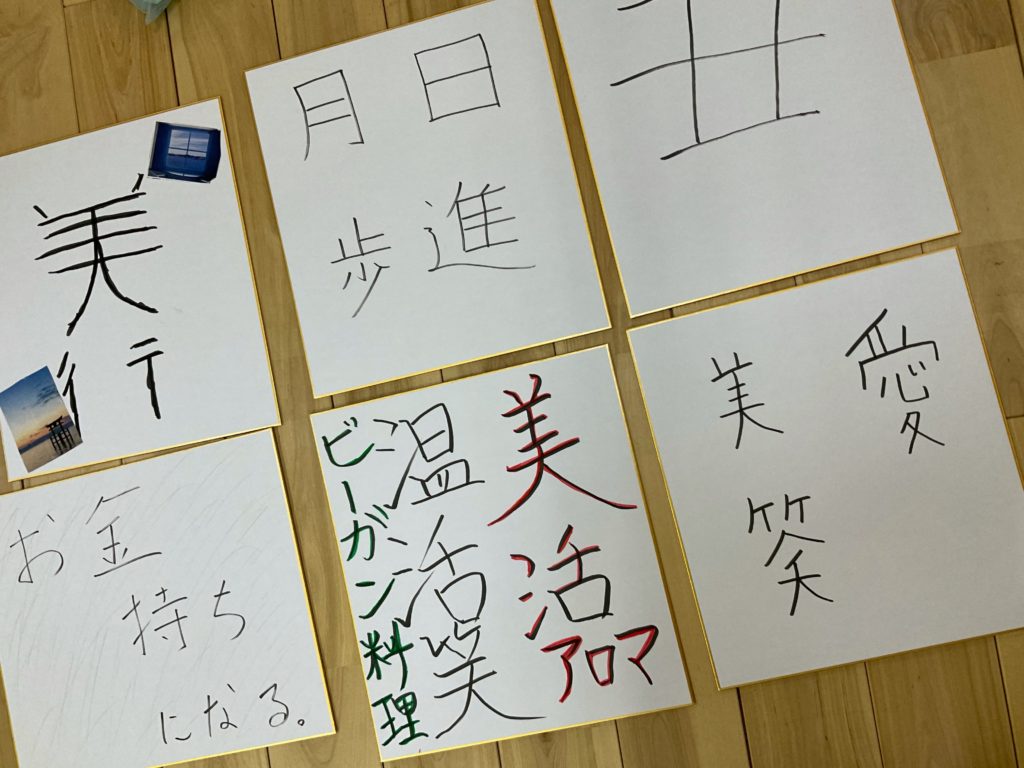 美行
日進
月歩
お金
持ち
になる。
美活
アロマ
温活笑
ビーガン料理
愛
美
笑